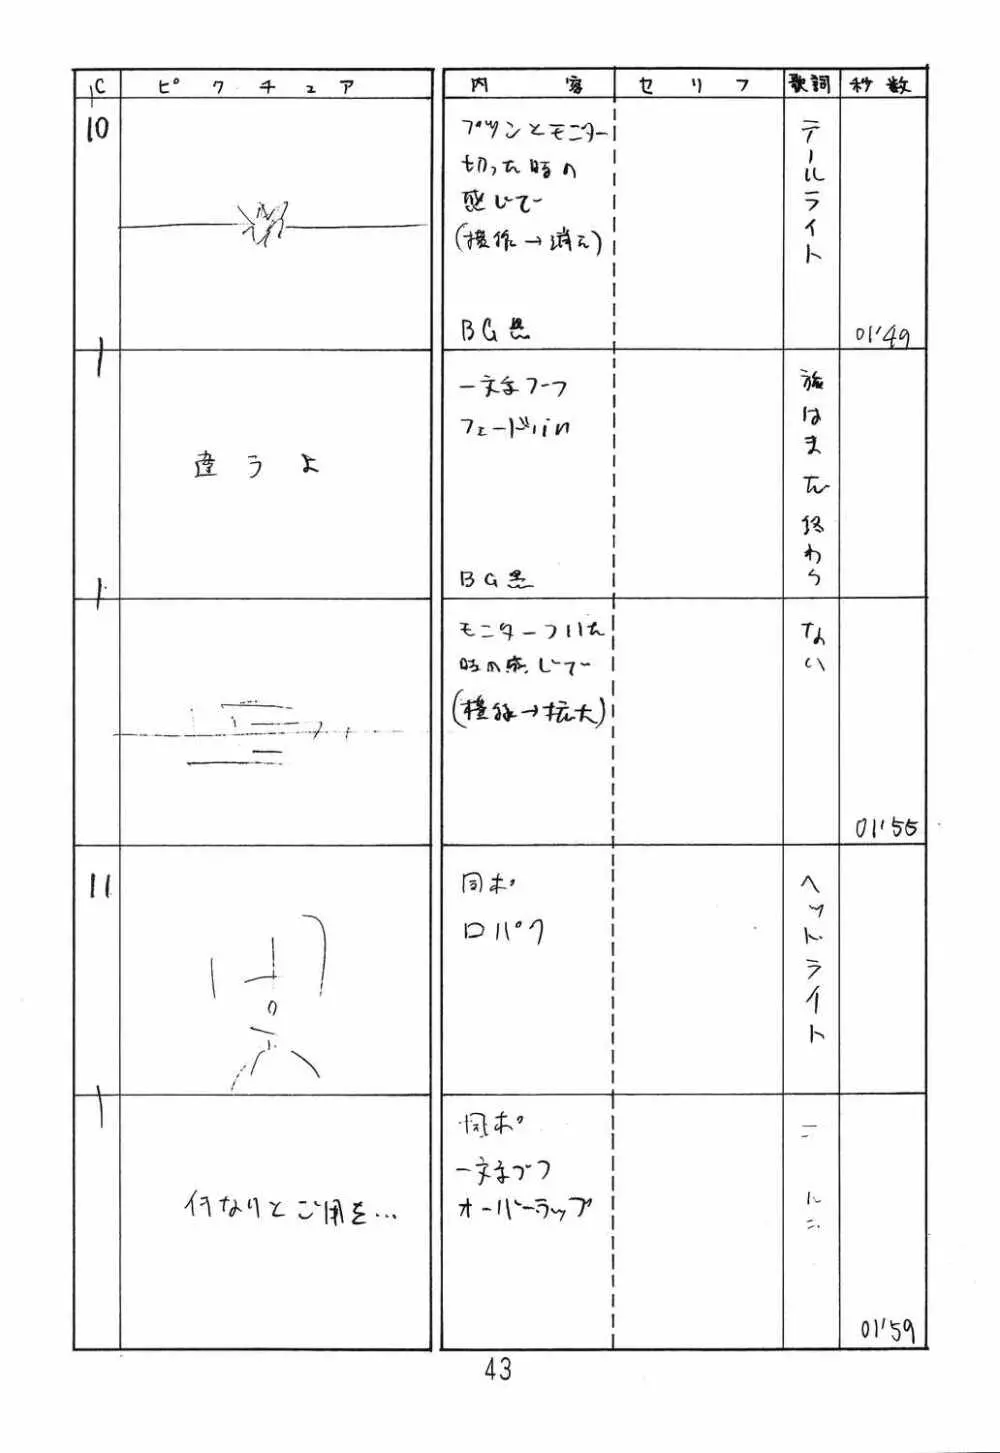 C ピクチュア 内容 セリフ 歌詞 秒数
10
プツンとモニター
切った時の
感じでー
(横線→消え)
BG黒
テールライト
01'49
違うよ
一文字づつ
フェードin
BG黒
旅はまだ終わら
モニターついた
時の感じでー
(横線→拡大)
ない
01'55
11
同ポ
口パク
ヘッドライト
何なりとご用を…
同ポ
一文字づつ
オーバーラップ
01'59
43